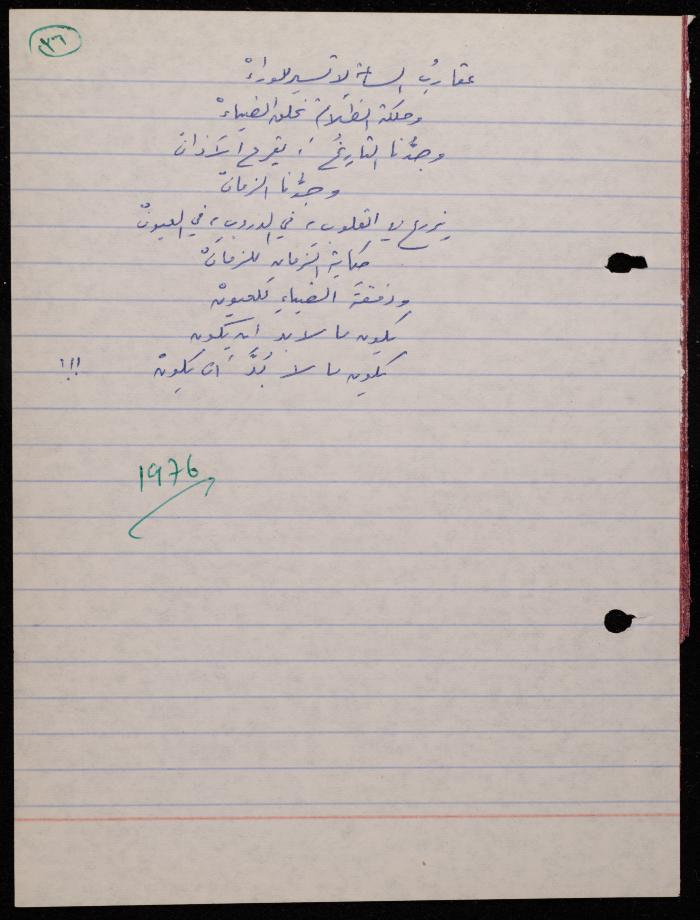 ٣٦
عقاربُ الساعة لا تسير للوراءْ
وحلكة الظلام تخلق الضياءْ
وجدُّنا التاريخُ ، يقرع الآذانْ
وجدُّنا الزمانْ
يزرع في القلوب ، في الدروبِ ، في العيونْ
حكاية الزمانِ للزمانْ
ودفقةَ الضياءِ للعيونْ
يكون ما لا بد ان يكون
يكون ما لا بُدَّ أن يكونْ !!!
1976